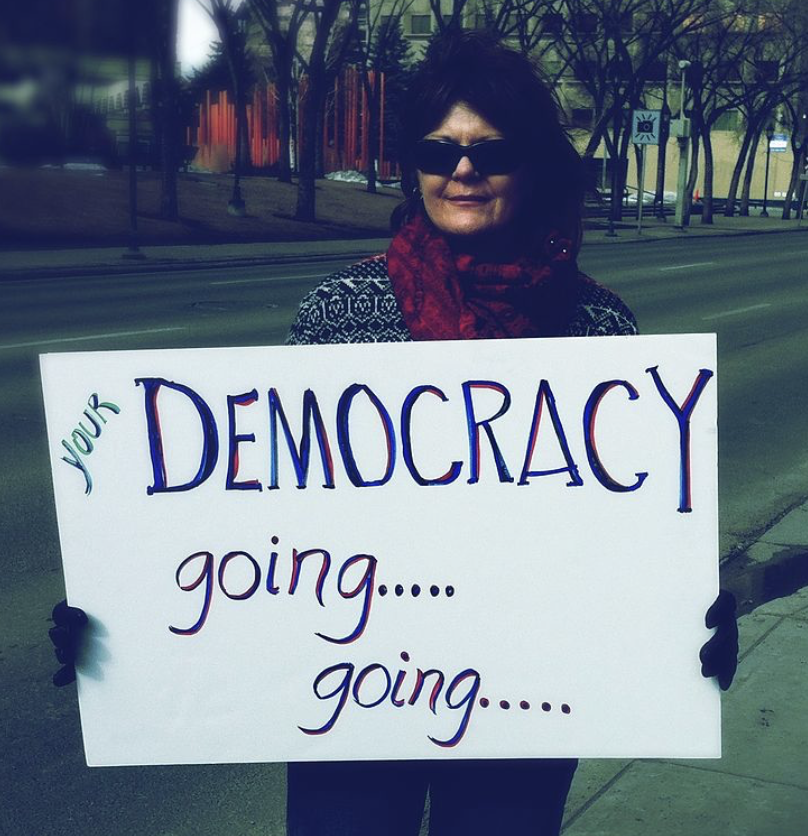 YOUR DEMOCRACY
going.....
going.....